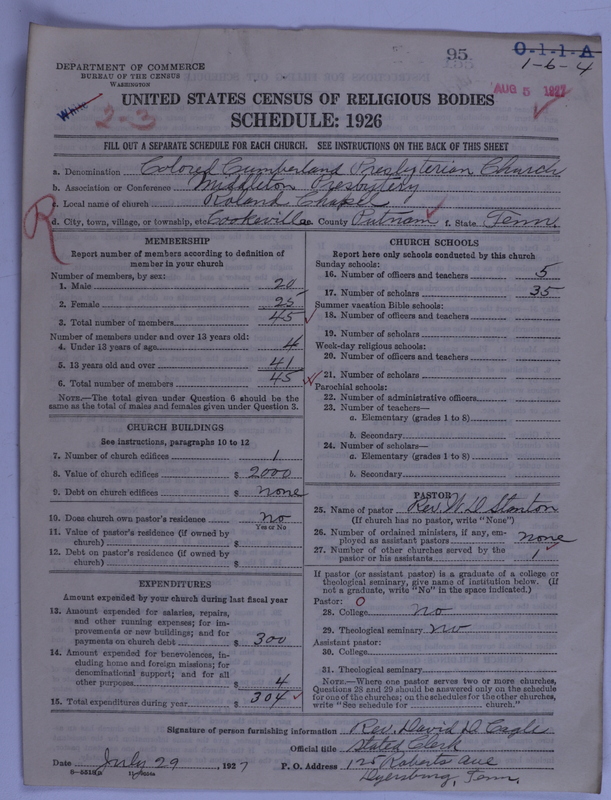 DEPARTMENT OF COMMERCE
BUREAU OF THE CENSUS
WASHINGTON
95
O-11-A
1-6-4
AUG 5 1927
White
2-3
UNITED STATES CENSUS OF RELIGIOUS BODIES
SCHEDULE: 1926
FILL OUT A SEPARATE SCHEDULE FOR EACH CHURCH. SEE INSTRUCTIONS ON THE BACK OF THIS SHEET
a. Denomination Colored Cumberland Presbyterian Church
b. Association or Conference Middleton Presbytery
c. Local name of church Roland Chapel
d. City, town, village, or township, etc. Cookeville e. County Putnam f. State Tenn.
R
MEMBERSHIP
Report number of members according to definition of
member in your church
Number of members, by sex:
1. Male 20
2. Female 25
3. Total number of members 45
Number of members under and over 13 years old:
4. Under 13 years of age 4
5. 13 years old and over 41
6. Total number of members 45
NOTE.—The total given under Question 6 should be
same as the total of males and females given under Question 3.
CHURCH BUILDINGS
See instructions, paragraphs 10 to 12
7. Number of church edifices 1
8. Value of church edifices $ 2000
9. Debt on church edifices $ none
10. Does church own pastor's residence no
Yes or No
11. Value of pastor's residence (if owned by
church) $
12. Debt on pastor's residence (if owned by
church) $
EXPENDITURES
Amount expended by your church during last fiscal year
13. Amount expended for salaries, repairs,
and other running expenses; for im-
provements or new buildings; and for
payments on church debt $ 300
14. Amount expended for benevolences, in-
cluding home and foreign missions; for
denominational support; and for all
other purposes $ 4
15. Total expenditures during year $ 304
CHURCH SCHOOLS
Report here only schools conducted by this church
Sunday schools:
16. Number of officers and teachers 5
17. Number of scholars 35
Summer vacation Bible schools:
18. Number of officers and teachers
19. Number of scholars
Week-day religious schools:
20. Number of officers and teachers
21. Number of scholars
Parochial schools:
22. Number of administrative officers
23. Number of teachers—
a. Elementary (grades 1 to 8)
b. Secondary
24. Number of scholars—
a. Elementary (grades 1 to 8)
b. Secondary
PASTOR
25. Name of pastor Rev. W. D. Stanton
(If church has no pastor, write "None")
26. Number of ordained ministers, if any, em-
ployed as assistant pastors none
27. Number of other churches served by the
pastor or his assistants 1
If pastor (or assistant pastor) is a graduate of a college or
theological seminary, give name of institution below. (If
not a graduate, write "No" in the space indicated.)
Pastor: O
28. College no
29. Theological seminary no
Assistant pastor:
30. College
31. Theological seminary
NOTE.—Where one pastor serves two or more churches,
Questions 28 and 29 should be answered only on the schedule
for one of the churches; on the schedules for the other churches,
write "See schedule for church."
Signature of person furnishing information Rev. David D. Cagle
Official title Stated Clerk
Date July 29, 1927 P. O. Address 125 Roberts Ave
Dyersburg, Tenn.